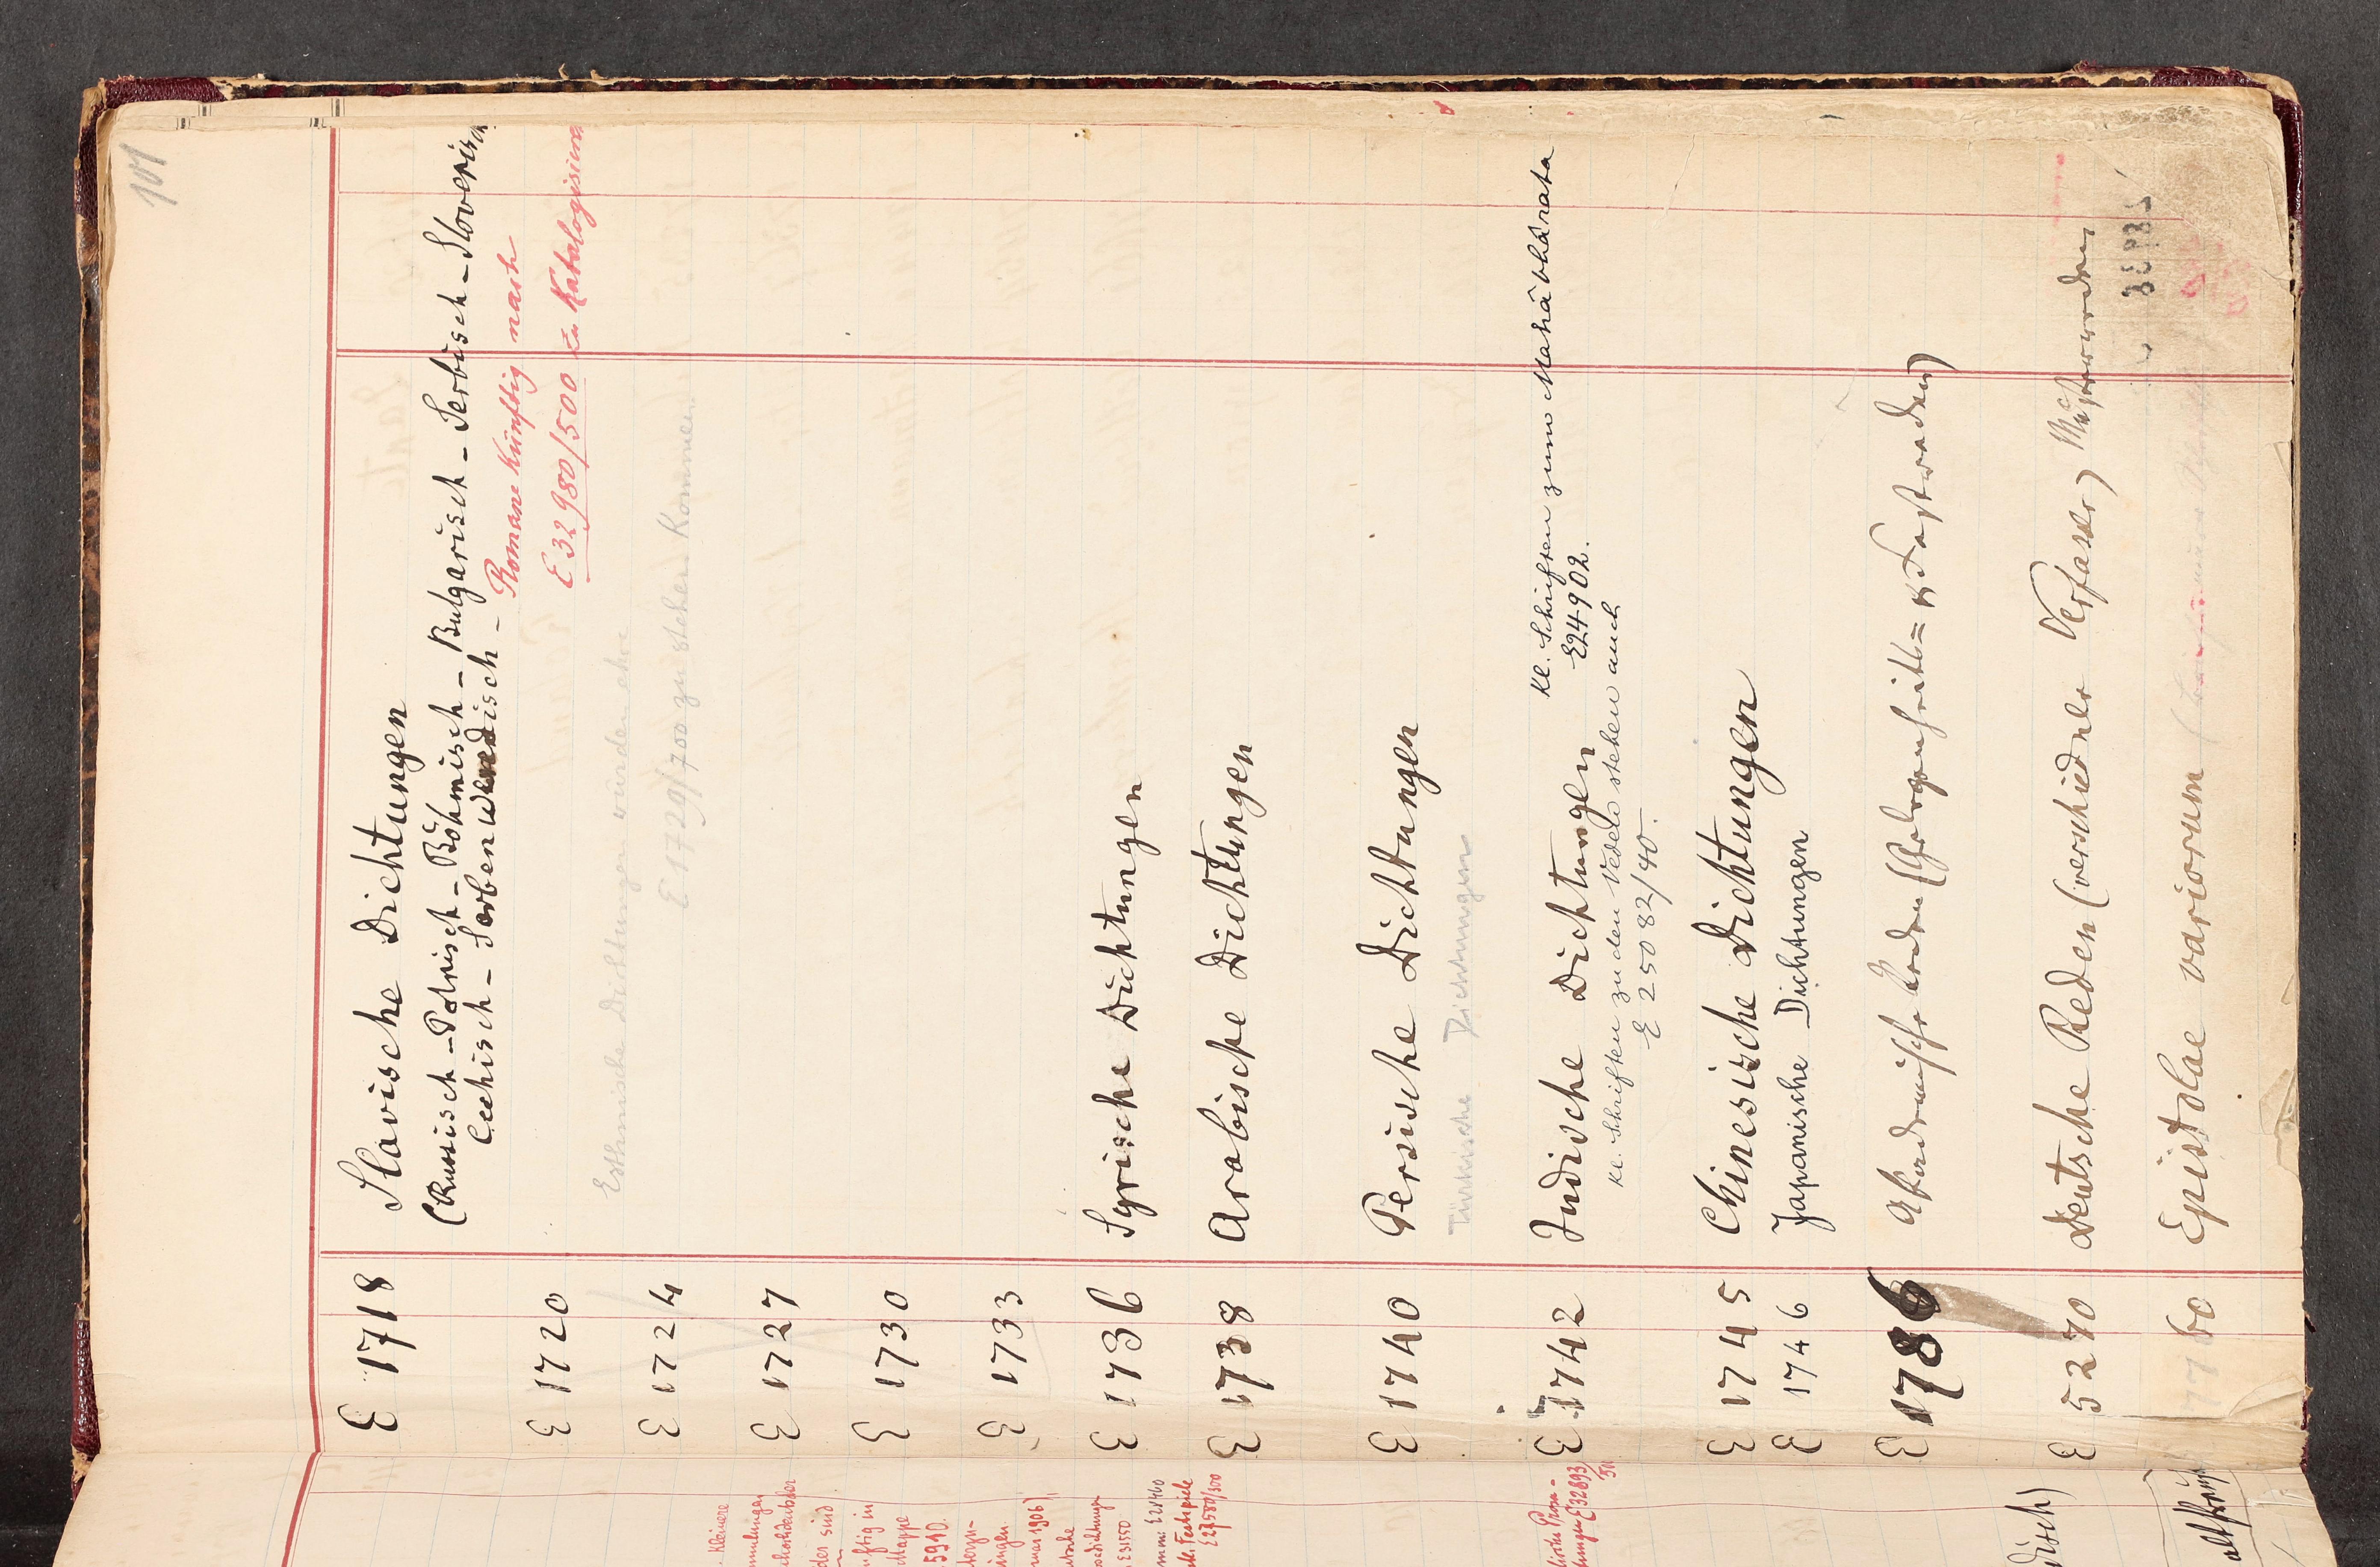 101
E 1718 Slavische Dichtungen
(Russisch - Polnisch - Böhmisch - Bulgarisch - Serbisch - Slovenisch
Cechisch - Sorbenwendisch -
Romane künftig nach
E 32980/500 zu Katalogisieren
E 1720
Esthnische Dichtungen würden eher
E 1724
E 1729/700 zu stehen kommen
E 1727
E 1730
E 1733
E 1736 Syrische Dichtungen
E 1738 Arabische Dichtungen
E 1740 Persische Dichtungen
Türkische Dichtungen
E 1742 Indische Dichtungen
Kl. Schriften zum Mahâbhârata
E24902.
Kl. Schriften zu den Vedas stehen auch
E 25082/40.
E 1745 Chinesische Dichtungen
E 1746 Japanische Dichtungen
E 1786 Akademische Reden (Gelegenheits= & Festreden)
E 5270 Deutsche Reden (verschiedner Verfasser)
7760 Epistolae variorum
Kleinere
der sind
Mappe
5910.
E31550
E 21460
Festspiele
E27580/300
E32893/